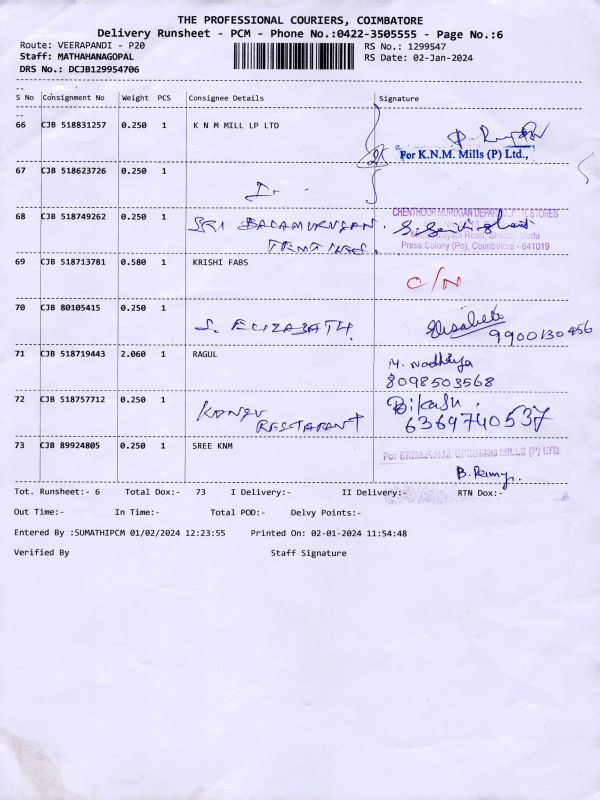 THE PROFESSIONAL COURIERS, COIMBATORE
Delivery Runsheet - PCM - Phone No.:0422-3505555 - Page No.:6
Route: VEERAPANDI - P20 RS No.: 1299547
Staff: MATHAHANAGOPAL RS Date: 02-Jan-2024
DRS No.: DCJB129954706
S No Consignment No Weight PCS Consignee Details Signature
66 CJB 518831257 0.250 1 K N M MILL LP LTD
For K.N.M. Mills (P) Ltd.,
67 CJB 518623726 0.250 1
68 CJB 518749262 0.250 1 SRI BALAMURUGAN
CHENTHOOR MURUGAN DEPARTMENTAL STORES
Press Colony (Po), Coimbatore - 641019
69 CJB 518713781 0.580 1 KRISHI FABS C/N
70 CJB 80105415 0.250 1 S. ELIZABATH. Elisabete
9900130456
71 CJB 518719443 2.060 1 RAGUL
8098503568
72 CJB 518757712 0.250 1 KONGU Bikash.
RESTARANT 6369740537
73 CJB 89924805 0.250 1 SREE KNM
For SREE K.N.M. SPINNING MILLS (P) LTD
B. Ramy.
Tot. Runsheet:- 6 Total Dox:- 73 I Delivery:- II Delivery:- RTN Dox:-
Out Time:- In Time:- Total POD:- Delvy Points:-
Entered By :SUMATHIPCM 01/02/2024 12:23:55 Printed On: 02-01-2024 11:54:48
Verified By Staff Signature